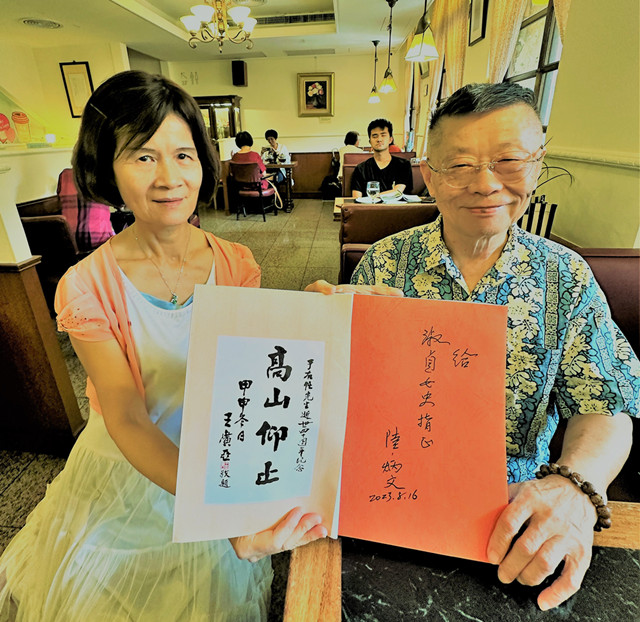 于右任先生逝世四十週年紀念
高山仰止
甲申冬日
王廣亞敬題
給
淑貞女史指正
陸炳文
2023.8.16